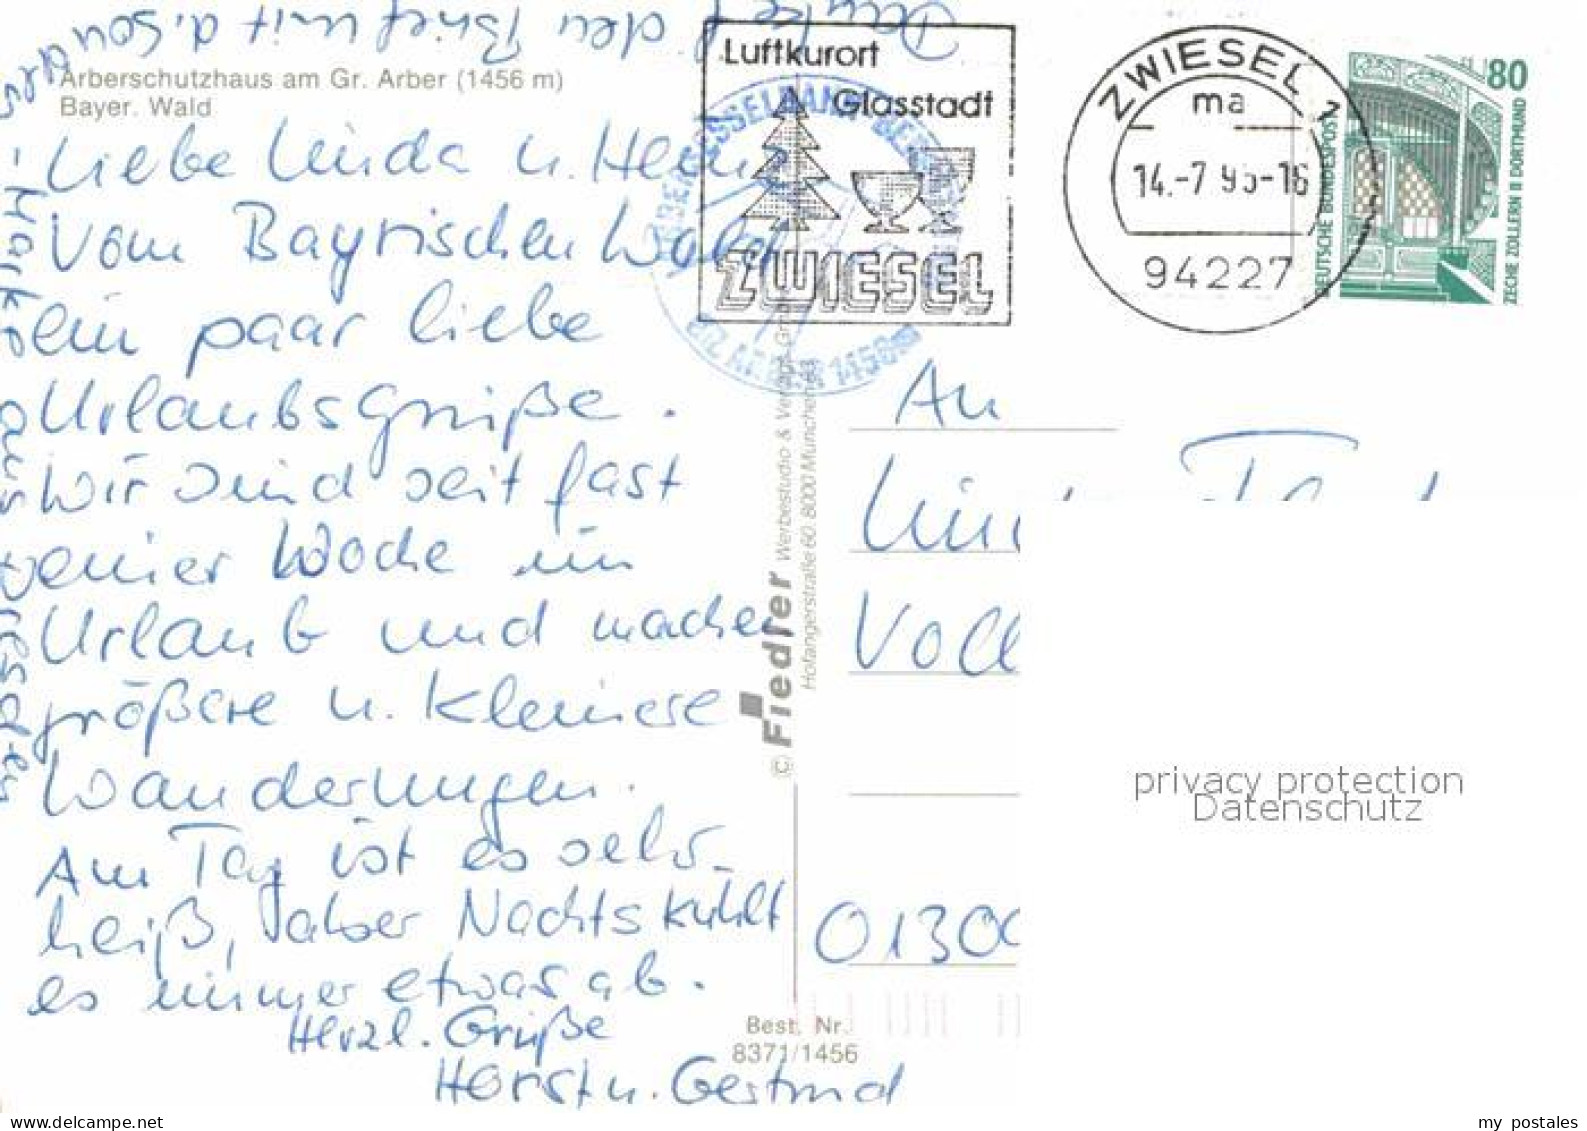 Arberschutzhaus am Gr. Arber (1456 m)
Bayer. Wald
Liebe Linda u. Heinz
Vom Bayrischen Wald
ein paar liebe
Urlaubsgrüße.
Wir sind seit fast
einer Woche im
Urlaub und machen
größere u. kleinere
Wanderungen.
Am Tag ist es sehr
heiß, aber Nachts kühlt
es immer etwas ab.
Herzl. Grüße
Horst u. Gertrud
den Brief mit d.
Luftkurort
Glasstadt
ZWIESEL
ZWIESEL 1
ma
14.-7.95-16
94227
80
DEUTSCHE BUNDESPOST
ZECHE ZOLLERN II DORTMUND
© Fiedler Werbestudio & Verlags-Gmb
Hofangerstraße 60 8000 München 83
Best. Nr.
8371/1456
An
0130
privacy protection
Datenschutz
www.delcampe.net
my_postales